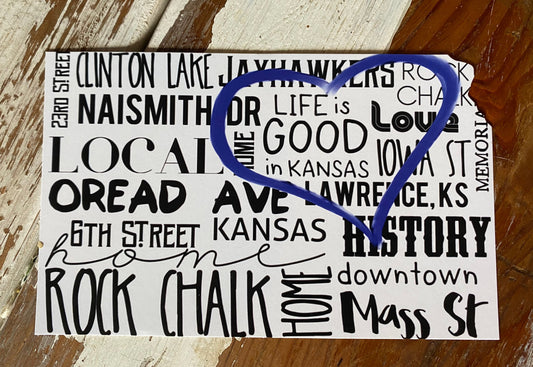 23RD STREET
CLINTON LAKE
JAYHAWKERS
ROCK
CHALK
NAISMITH DR
LIFE is
GOOD
in KANSAS
Love
MEMORIA
LOCAL
HOME
IOWA ST
OREAD AVE
LAWRENCE, KS
6TH STREET
KANSAS
HISTORY
home
ROCK CHALK
HOME
downtown
Mass St